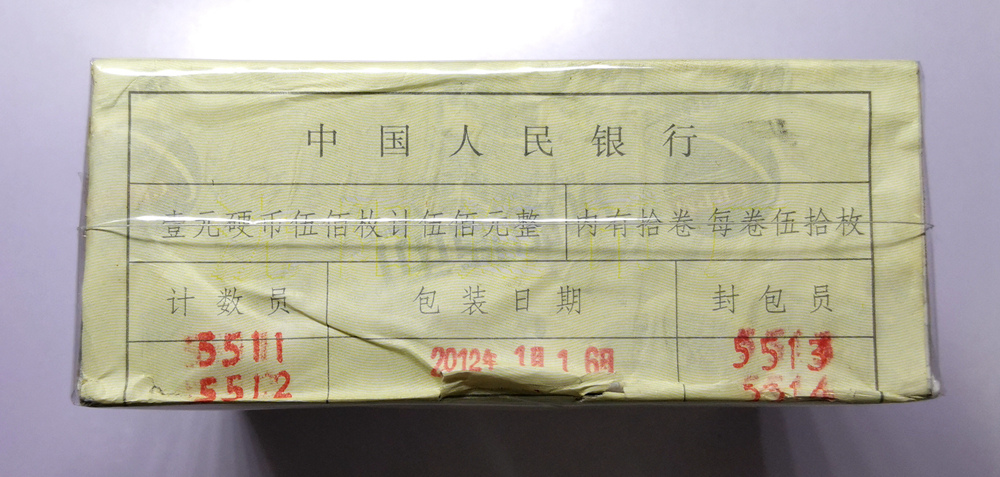 中国人民银行
壹元硬币伍佰枚计伍佰元整 内有拾卷 每卷伍拾枚
计数员 包装日期 封包员
5511 2012年 1月16日 5513
5512 5514